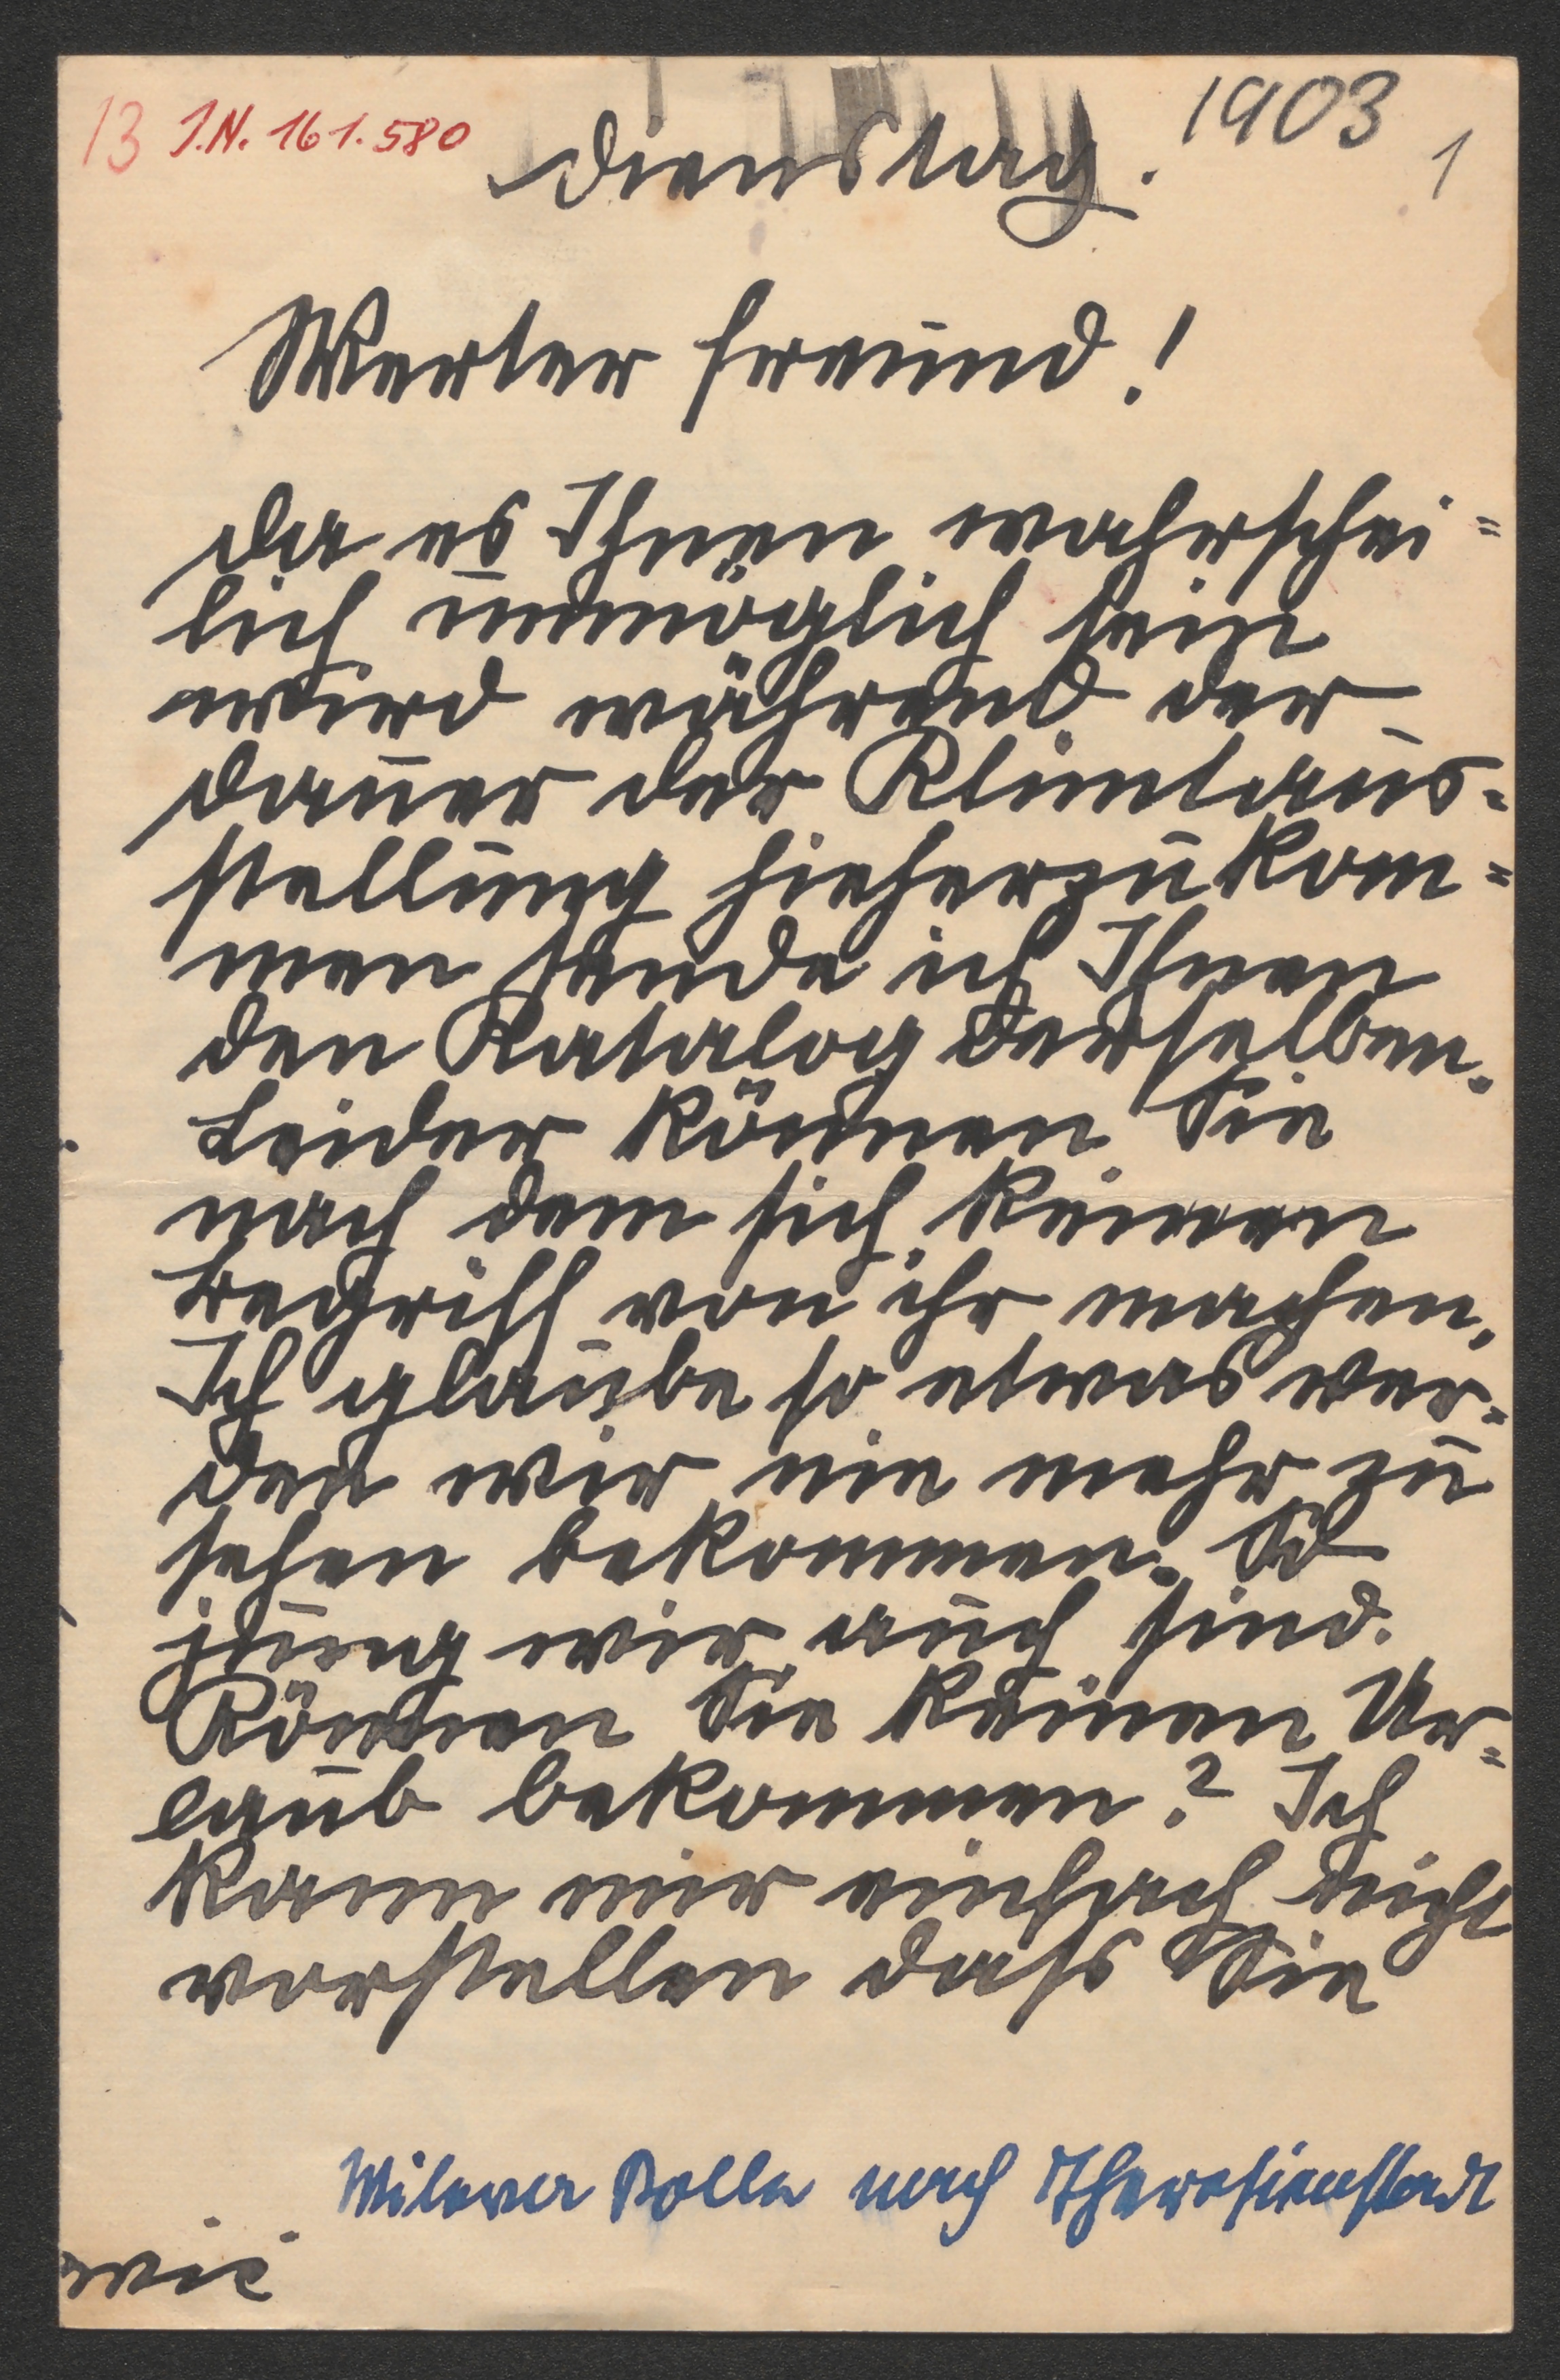 13 J.N. 161.580
1903
1
Dienstag.
Werter Freund!
Da es Ihnen wahrschei=
lich unmöglich sein
wird während der
Dauer der Klimtaus=
stellung hieherzukom=
men sende ich Ihnen
den Katalog derselben.
Leider können Sie
nach dem sich keinen
Begriff von ihr machen.
Ich glaube so etwas wer=
den wir nie mehr zu
sehen bekommen. So
jung wir auch sind.
Können Sie keinen Ur=
laub bekommen? Ich
kann mir einfach nicht
vorstellen dass Sie
nach Theresienstadt
wie